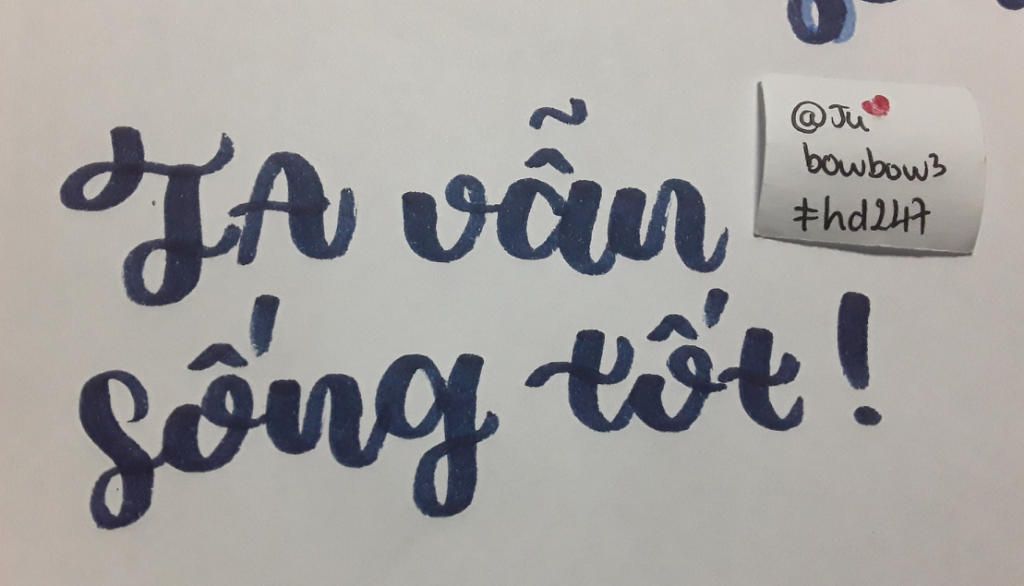 TA vẫn
sống tốt!
@Ju
bowbow3
#hd247